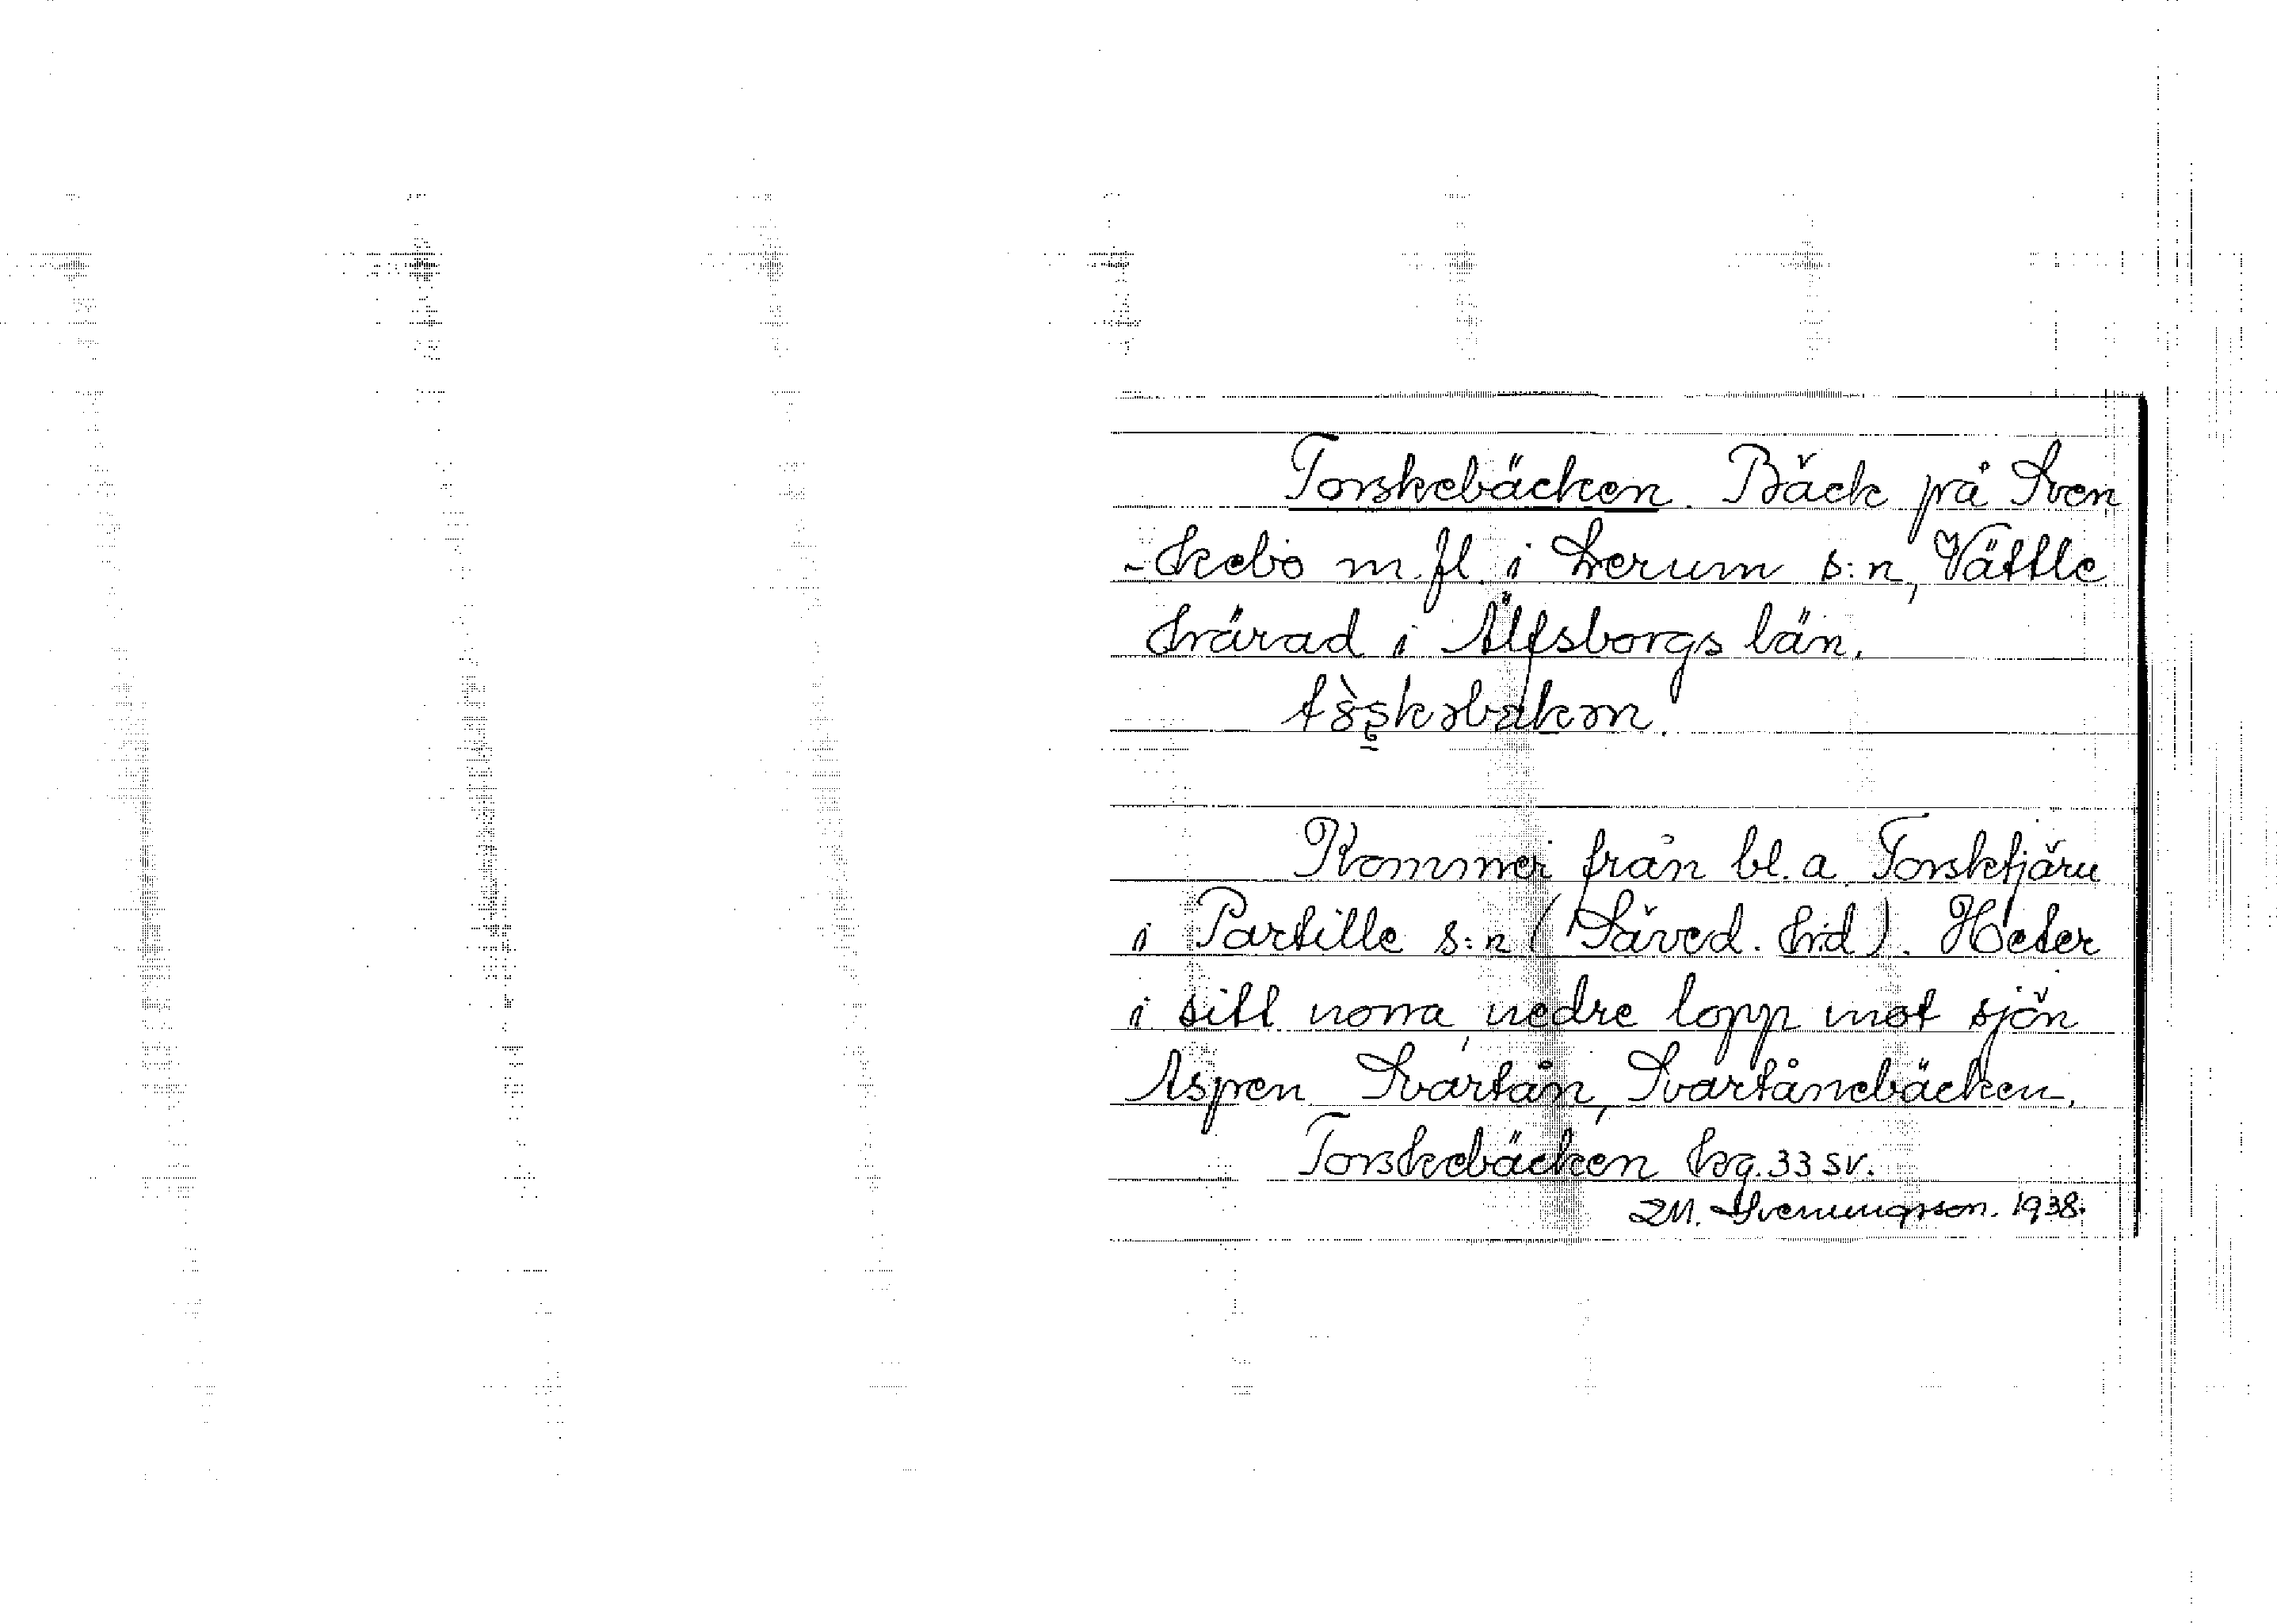 Torskebäcken. Bäck på Sven
-skebo m. fl. i Lerum s:n, Vättle
härad i Älfsborgs län.
Kommer från bl. a. Torsktjärn
i Partille s:n (Säved. hd). Heter
i sitt norra, nedre lopp mot sjön
Aspen Svartån, Svartånebäcken.
Torskebäcken hsg. 33 SV.
M. Svenungsson. 1938.